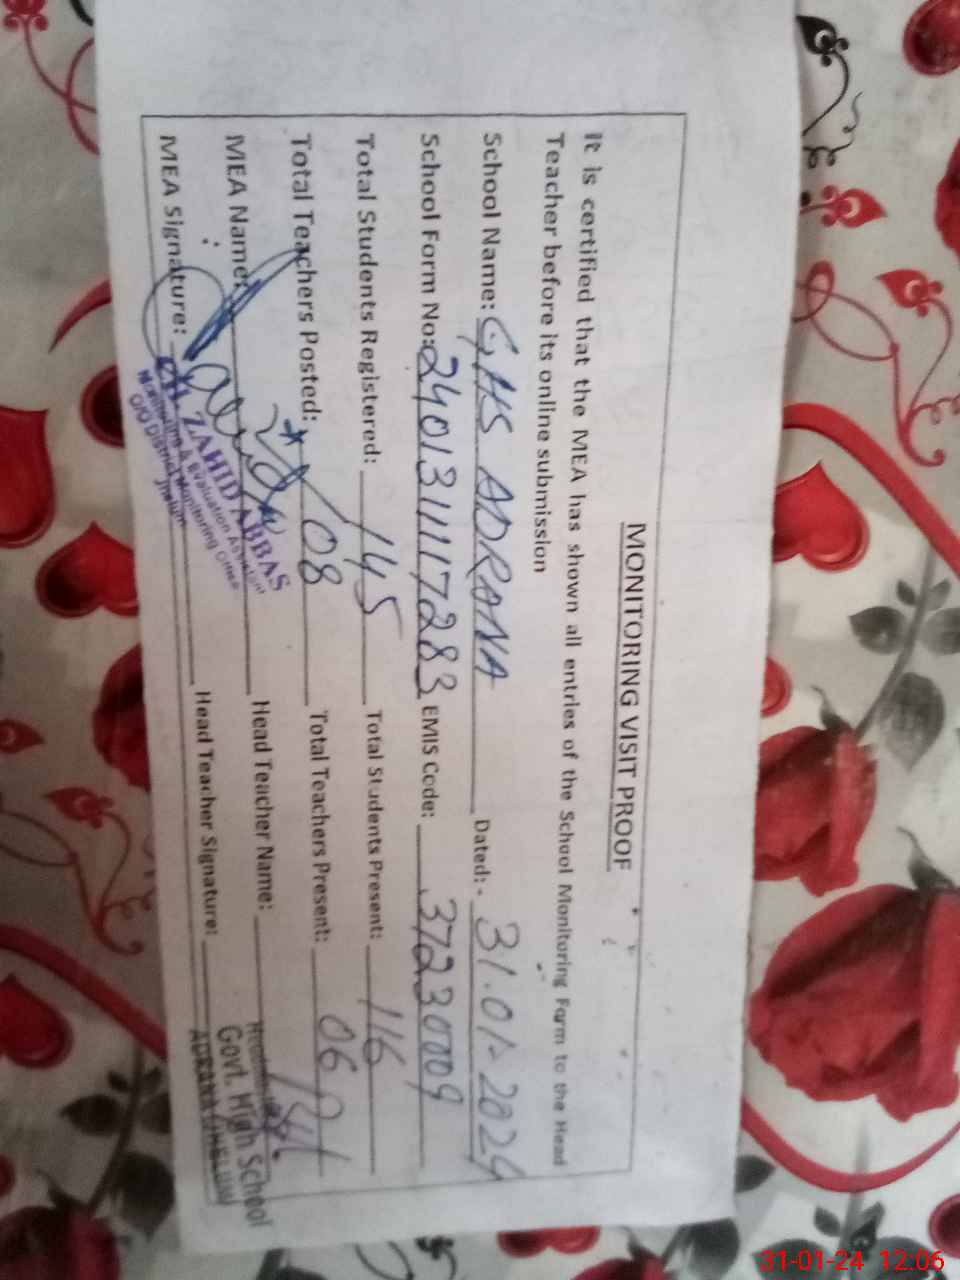 MONITORING VISIT PROOF
It is certified that the MEA has shown all entries of the School Monitoring Form to the Head
Teacher before its online submission
School Name: GHS ADRANA Dated: - 31.01.2024
School Form No: 2401311117283 EMIS Code: 37230009
Total Students Registered: 145 Total Students Present: 116
Total Teachers Posted: 08 Total Teachers Present: 06
MEA Name: Head Teacher Name:
MEA Signature: Head Teacher Signature:
ZAHID ABBAS
Monitoring & Evaluation Assistant
O/O District Monitoring Office
Jhelum
Govt. High School
ADRANA (JHELUM)
31-01-24 12:06